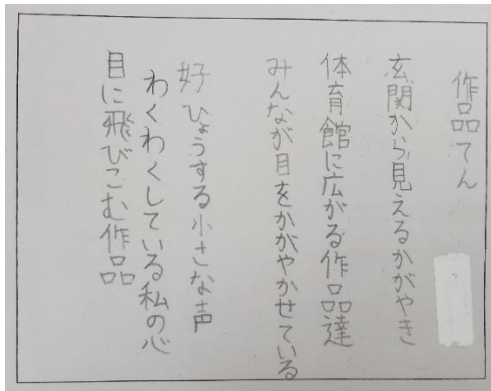 作品てん
玄関から見えるかがやき
体育館に広がる作品達
みんなが目をかがやかせている
好ひょうする小さな声
わくわくしている私の心
目に飛びこむ作品